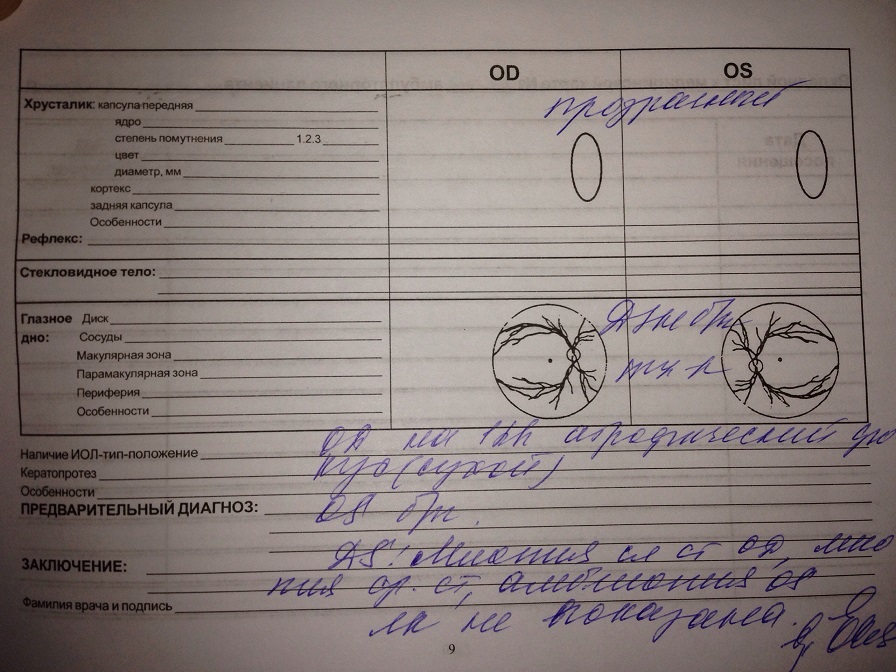 OD OS
Хрусталик: капсула-передняя
прозрачный
ядро
степень помутнения 1.2.3
цвет
диаметр, мм
кортекс
задняя капсула
Особенности
Рефлекс:
Стекловидное тело:
Глазное Диск
дно: Сосуды
Макулярная зона
Парамакулярная зона
Периферия
Особенности
Наличие ИОЛ-тип-положение OD на 12h атрофический фо
Кератопротез кус (сухой)
Особенности
ПРЕДВАРИТЕЛЬНЫЙ ДИАГНОЗ: OS б/п.
ЗАКЛЮЧЕНИЕ: DS: Миопия сл ст OD, мио
пия ср. ст, амблиопия OS
Фамилия врача и подпись
лк не показана.
9